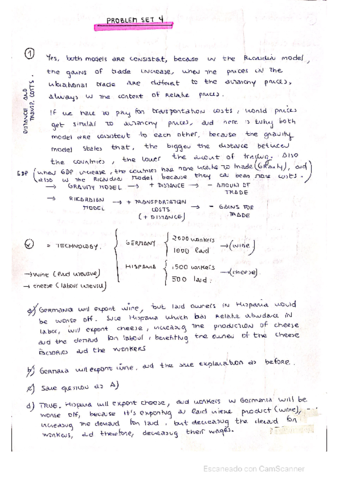 PROBLEM SET 4
DISTANCE AND TRANSP. COSTS.
① Yes, both models are consistent, because in the Ricardian model,
the gains of trade increase, when the prices in the
international trade are different to the autarky prices,
always in the context of relative prices.
If we have to pay for transportation costs, world prices
get similar to autarky prices, and here is why both
model are consistent to each other. because the gravity
model states that, the bigger the distance between
the countries, the lower the amount of trading. Also
GDP (when GDP increase, the countries has more to trade (Gravity), and
also in the Ricardian Model because they can bear more costs.
→ GRAVITY MODEL → + DISTANCE → - AMOUNT OF TRADE
→ RICARDIAN MODEL → + TRANSPORTATION COSTS (+ DISTANCE) → - GAINS FOR TRADE
② = TECHNOLOGY.
GERMANY 2000 workers
1000 land → (wine)
→ wine (land intensive)
HISPANIA 1500 workers
500 land → (cheese)
→ cheese (labour intensive)
a) Germania will export wine, but land owners in Hispania would
be worse off. Since Hispania which has relative abundance in
labor, will export cheese, increasing the production of cheese
and the demand for labour, benefiting the owner of the cheese
factories and the workers
b) Germania will export wine. and the same explanation as before.
c) Same question as A)
d) TRUE. Hispania will export cheese, and workers in Germania will be
worse off, because it's exporting a land intensive product (wine),
increasing the demand for land. but decreasing the demand for
workers, and therefore, decreasing their wages.
Escaneado con CamScanner